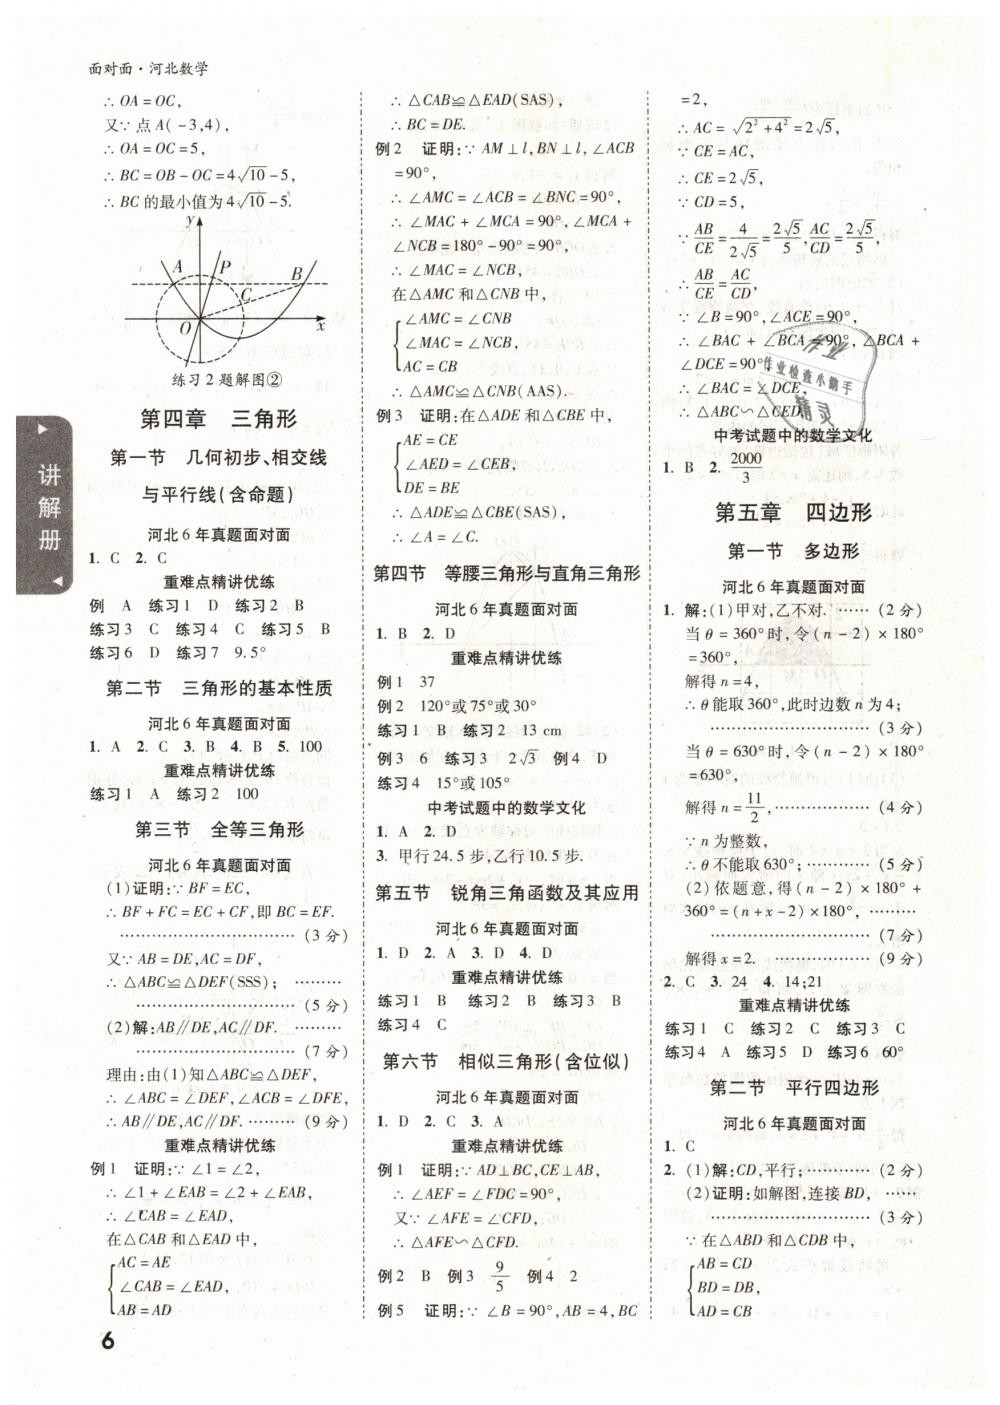 面对面·河北数学
∴ OA = OC,
又∵ 点A( -3,4),
∴ OA = OC = 5,
∴ BC = OB - OC = 4√10 - 5,
∴ BC 的最小值为 4√10 - 5.
y
A
P
B
C
O
x
练习 2 题解图②
第四章 三角形
第一节 几何初步、相交线
与平行线(含命题)
河北 6 年真题面对面
1. C 2. C
重难点精讲优练
例 A 练习 1 D 练习 2 B
练习 3 C 练习 4 C 练习 5 B
练习 6 D 练习 7 9.5°
第二节 三角形的基本性质
河北 6 年真题面对面
1. A 2. C 3. B 4. B 5. 100
重难点精讲优练
练习 1 A 练习 2 100
第三节 全等三角形
河北 6 年真题面对面
(1)证明:∵ BF = EC,
∴ BF + FC = EC + CF,即 BC = EF.
…………………………… (3 分)
又∵ AB = DE,AC = DF,
∴ △ABC≌△DEF(SSS); ………
…………………………… (5 分)
(2)解:AB∥DE,AC∥DF. ………
…………………………… (7 分)
理由:由(1)知△ABC≌△DEF,
∴ ∠ABC = ∠DEF,∠ACB = ∠DFE,
∴ AB∥DE,AC∥DF. ……… (9 分)
重难点精讲优练
例 1 证明:∵ ∠1 = ∠2,
∴ ∠1 + ∠EAB = ∠2 + ∠EAB,
∴ ∠CAB = ∠EAD,
在△CAB 和△EAD 中,
AC = AE
∠CAB = ∠EAD,
AB = AD
∴ △CAB≌△EAD(SAS),
∴ BC = DE.
例 2 证明:∵ AM⊥l,BN⊥l,∠ACB
= 90°,
∴ ∠AMC = ∠ACB = ∠BNC = 90°,
∴ ∠MAC + ∠MCA = 90°,∠MCA +
∠NCB = 180° - 90° = 90°,
∴ ∠MAC = ∠NCB,
在△AMC 和△CNB 中,
∠AMC = ∠CNB
∠MAC = ∠NCB,
AC = CB
∴ △AMC≌△CNB(AAS).
例 3 证明:在△ADE 和△CBE 中,
AE = CE
∠AED = ∠CEB,
DE = BE
∴ △ADE≌△CBE(SAS),
∴ ∠A = ∠C.
第四节 等腰三角形与直角三角形
河北 6 年真题面对面
1. B 2. D
重难点精讲优练
例 1 37
例 2 120°或 75°或 30°
练习 1 B 练习 2 13 cm
例 3 6 练习 3 2√3 例 4 D
练习 4 15°或 105°
中考试题中的数学文化
1. A 2. D
3. 甲行 24.5 步,乙行 10.5 步.
第五节 锐角三角函数及其应用
河北 6 年真题面对面
1. D 2. A 3. D 4. D
重难点精讲优练
练习 1 B 练习 2 B 练习 3 B
练习 4 C
第六节 相似三角形(含位似)
河北 6 年真题面对面
1. D 2. C 3. A
重难点精讲优练
例 1 证明:∵ AD⊥BC,CE⊥AB,
∴ ∠AEF = ∠FDC = 90°,
又∵ ∠AFE = ∠CFD,
∴ △AFE∽△CFD.
例 2 B 例 3 9/5 例 4 2
例 5 证明:∵ ∠B = 90°,AB = 4,BC
= 2,
∴ AC = √(2² + 4²) = 2√5,
∵ CE = AC,
∴ CE = 2√5,
∵ CD = 5,
∵ AB/CE = 4/2√5 = 2√5/5, AC/CD = 2√5/5,
∴ AB/CE = AC/CD,
∵ ∠B = 90°,∠ACE = 90°,
∴ ∠BAC + ∠BCA = 90°,∠BCA +
∠DCE = 90°,
∴ ∠BAC = ∠DCE,
∴ △ABC∽△CED.
作业
作业检查小帮手
精灵
中考试题中的数学文化
1. B 2. 2000/3
第五章 四边形
第一节 多边形
河北 6 年真题面对面
1. 解:(1)甲对,乙不对. …… (2 分)
当 θ = 360°时,令(n - 2) × 180°
= 360°,
解得 n = 4,
∴ θ 能取 360°,此时边数 n 为 4;
…………………………… (3 分)
当 θ = 630°时,令(n - 2) × 180°
= 630°,
解得 n = 11/2, …………… (4 分)
∵ n 为整数,
∴ θ 不能取 630°; ………… (5 分)
(2)依题意,得(n - 2) × 180° +
360° = (n + x - 2) × 180°, ………
…………………………… (7 分)
解得 x = 2. ……………… (9 分)
2. C 3. 24 4. 14;21
重难点精讲优练
练习 1 C 练习 2 C 练习 3 C
练习 4 A 练习 5 D 练习 6 60°
第二节 平行四边形
河北 6 年真题面对面
1. C
2. (1)解:CD,平行; ………… (2 分)
(2)证明:如解图,连接 BD, ……
…………………………… (3 分)
∵ 在△ABD 和△CDB 中,
AB = CD
BD = DB,
AD = CB
讲解册
6